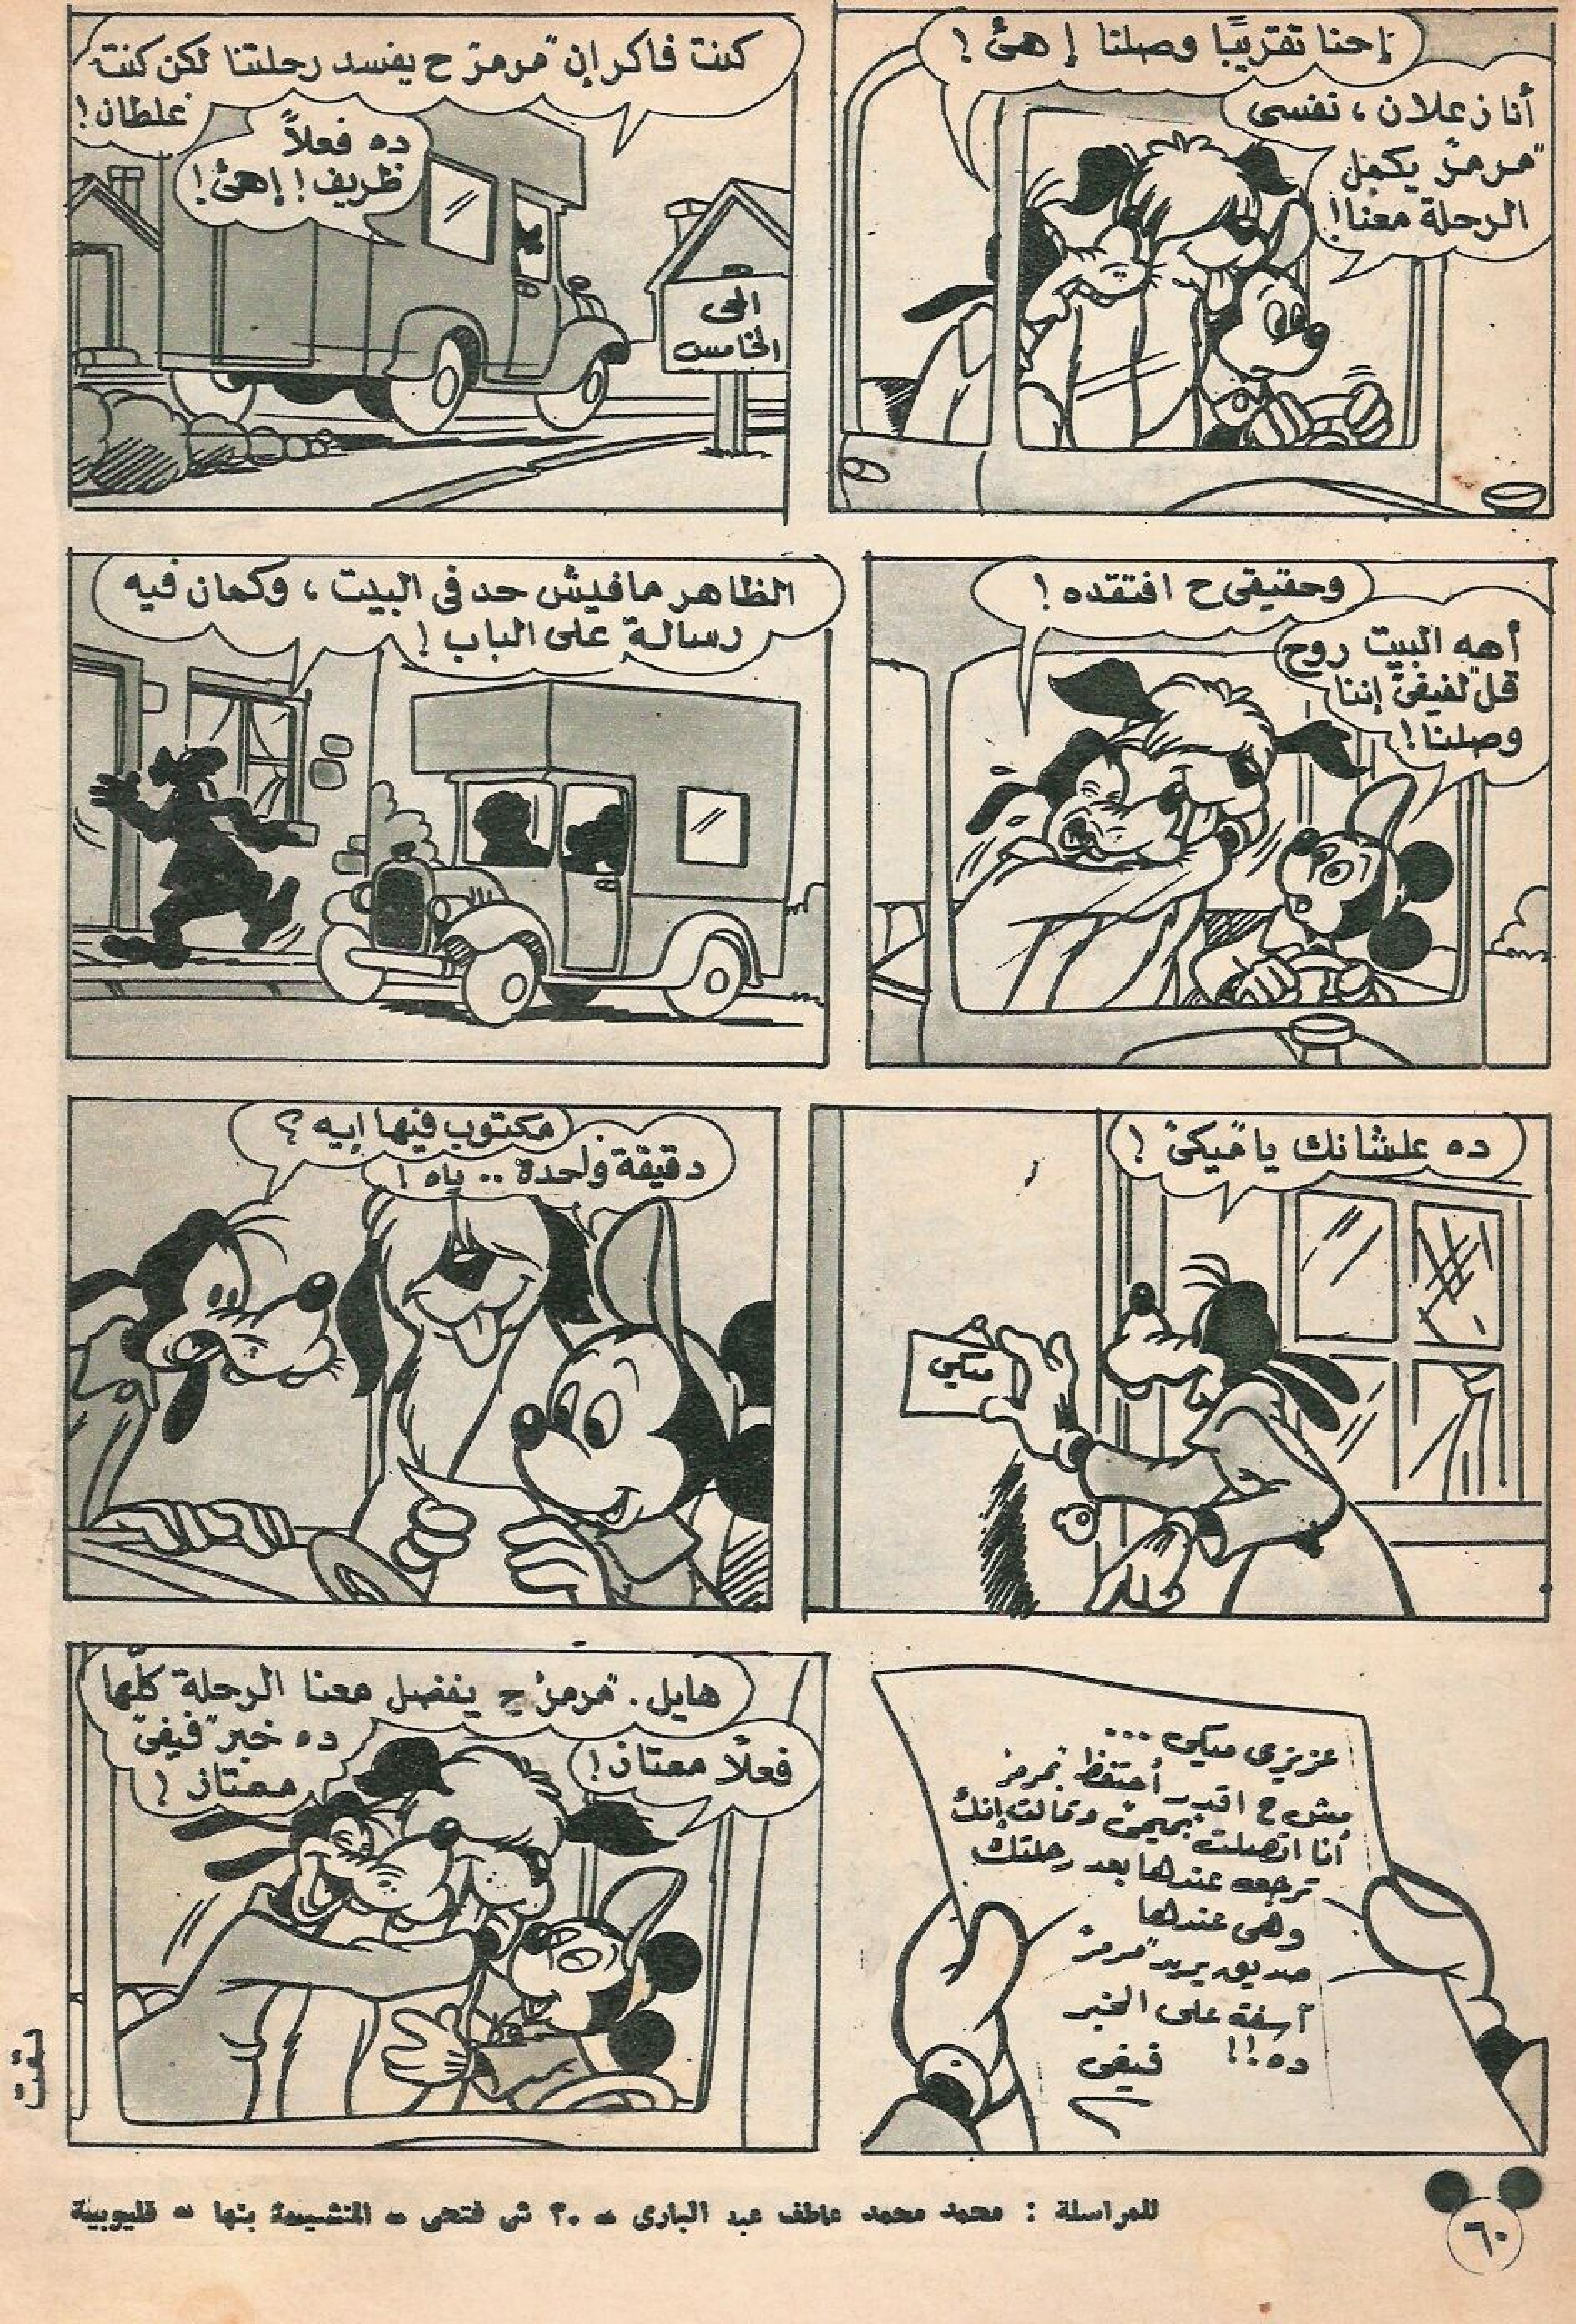 إحنا تقريبًا وصلنا إهئ!
أنا زعلان، نفسى
"مرمز" يكمل
الرحلة معنا!
كنت فاكر إن "مرمز" ح يفسد رحلتنا لكن كنت
غلطان!
ده فعلاً
ظريف! إهئ!
الحى
الخامس
وحقيقى ح افتقده!
أهه البيت روح
قل "لفيفى" إننا
وصلنا!
الظاهر مافيش حد فى البيت، وكمان فيه
رسالة على الباب!
ده علشانك يا "ميكى"!
ميكي
مكتوب فيها إيه؟
دقيقة واحدة.. ياه!
عزيزى ميكى...
مش ح اقدر أحتفظ بمرمز
أنا اتصلت "بميمى" وقالت إنك
ترجعه عندها بعد رحلتك
وهى عندها
صديق يريد "مرمز"
آسفة على الخبر
ده!! فيفى
هايل. "مرمز" ح يفضل معنا الرحلة كلّها
ده خبر "فيفى"
ممتاز!
فعلاً ممتاز!
تمت
للمراسلة : محمد محمد عاطف عبد البارى - ٢٠ ش فتحى - المنشية بنها - قليوبية
٦٠